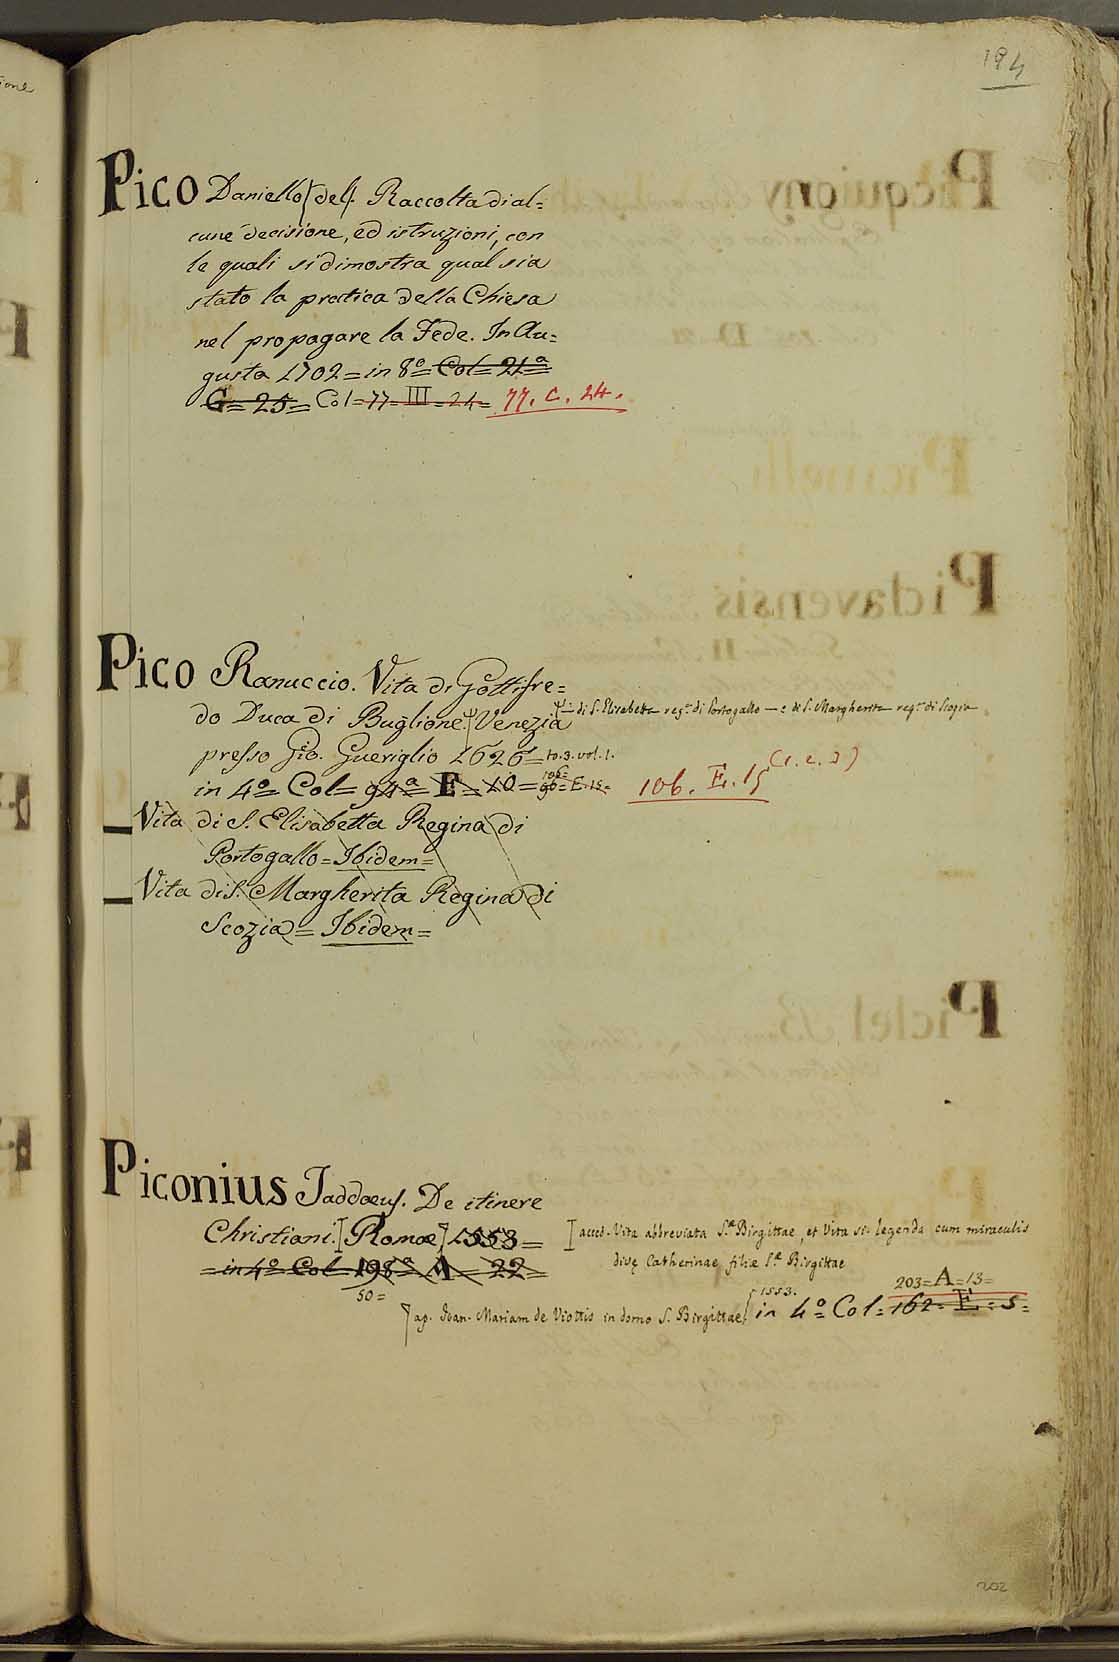 194
Pico Daniello (del). Raccolta di al=
cune decisione, ed istruzioni, con
le quali si dimostra qual sia
stato la pratica della Chiesa
nel propagare la Fede. In Au=
gusta 1702 = in 8º = Col = 21ª
G = 25 = Col = 77 = III = 24 = 77. C. 24.
Pico Ranuccio. Vita di Gottifre=
do Duca di Buglione. Venezia — di S. Elisabetta reg.ª di Portogallo — e di S. Margherita reg.ª di Scozia
presso Gio. Gueriglio 1626 = to. 3. vol. 1.
in 4º = Col = 94ª = E = 10 = 96 = E. 15 = 106 = 106. E. 15 (1. 2. 3)
— Vita di S. Elisabetta Regina di
Portogallo = Ibidem =
— Vita di S. Margherita Regina di
Scozia = Ibidem =
Piconius Taddaeus. De itinere
Christiani. [Romae] 1553 = [acced. Vita abbreviata S.æ Birgittae, et Vita si. legenda cum miraculis
= in 4º Col 198ª A = 22 = divę Catherinae filiæ S.æ Birgittae
50 =
203 = A = 13 =
[ap. Ioan. Mariam de Viottis in domo S. Birgittae, 1553. in 4º = Col = 162 = E = 5 =
202